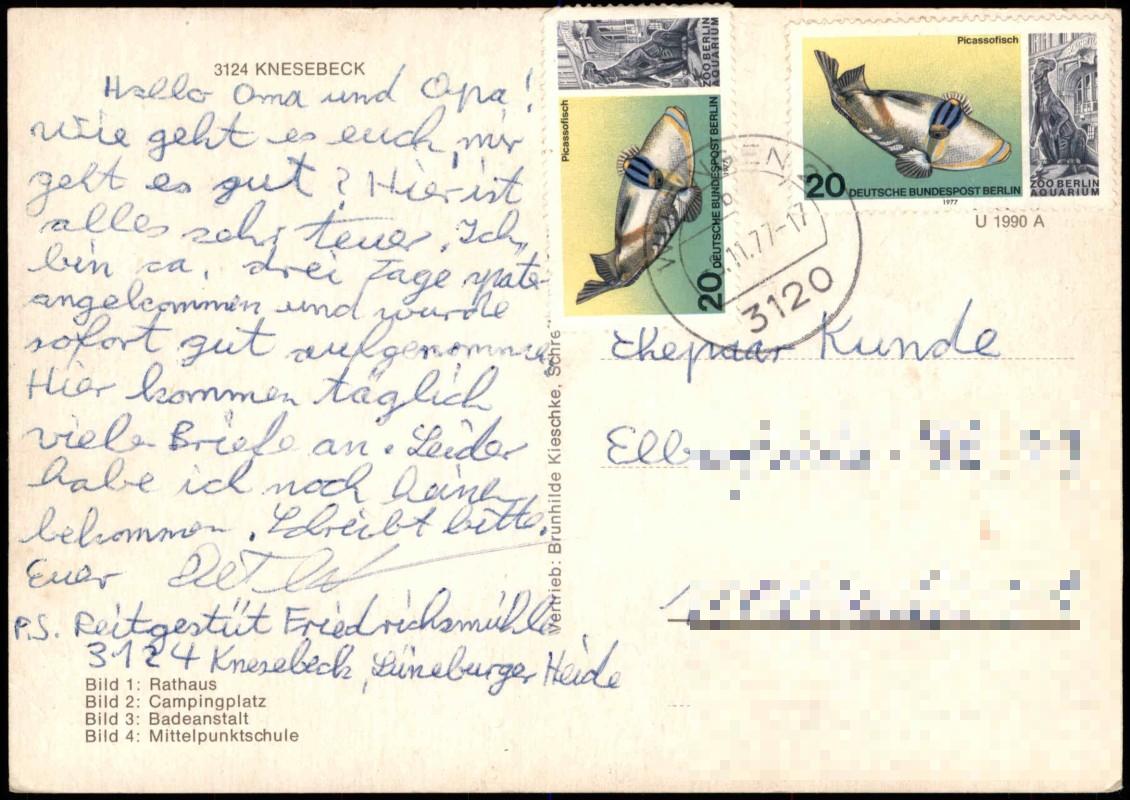 3124 KNESEBECK
Hallo Oma und Opa!
Wie geht es euch, mir
geht es gut? Hier ist
alles sehr teuer. Ich
bin ca. drei Tage später
angekommen und wurde
sofort gut aufgenommen
Hier kommen täglich
viele Briefe an. Leider
habe ich noch keine
bekommen. Schreibt bitte.
Euer
P.S. Reitgestüt Friedrichsmühle
3124 Knesebeck, Lüneburger Heide
Bild 1: Rathaus
Bild 2: Campingplatz
Bild 3: Badeanstalt
Bild 4: Mittelpunktschule
Vertrieb: Brunhilde Kieschke, Schre
Picassofisch
ZOO BERLIN
AQUARIUM
20 DEUTSCHE BUNDESPOST BERLIN
Picassofisch
ZOO BERLIN
AQUARIUM
20 DEUTSCHE BUNDESPOST BERLIN
1977
.11.77-17
3120
U 1990 A
Ehepaar Kunde